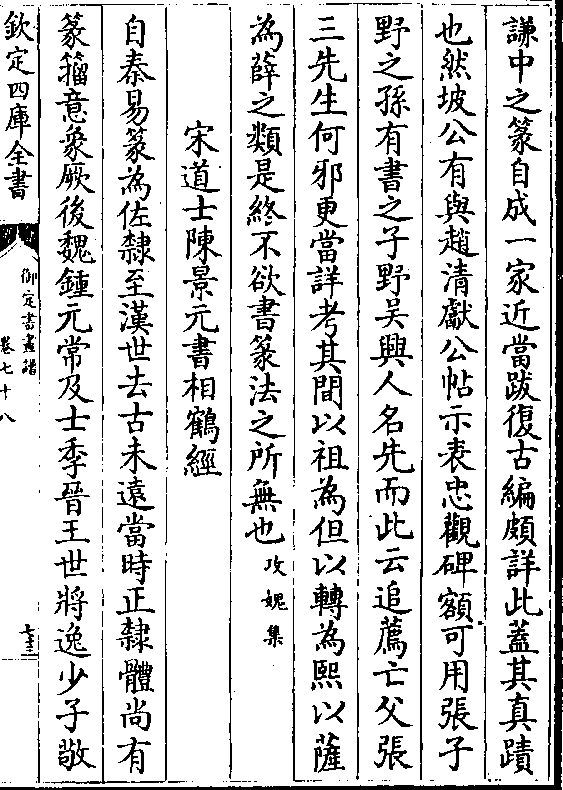 謙中之篆自成一家近當跋復古編頗詳此蓋其真蹟
也然坡公有與趙清獻公帖示表忠觀碑額可用張子
野之孫有書之子野吳興人名先而此云追薦亡父張
三先生何邪更當詳考其間以祖為但以轉為熙以薩
為薛之類是終不欲書篆法之所無也攻媿集
宋道士陳景元書相鶴經
自秦易篆為佐隸至漢世去古未遠當時正隸體尚有
篆籀意象厥後魏鍾元常及士季晉王世將逸少子敬
欽定四庫全書
御定書畫譜
卷七十八
七三